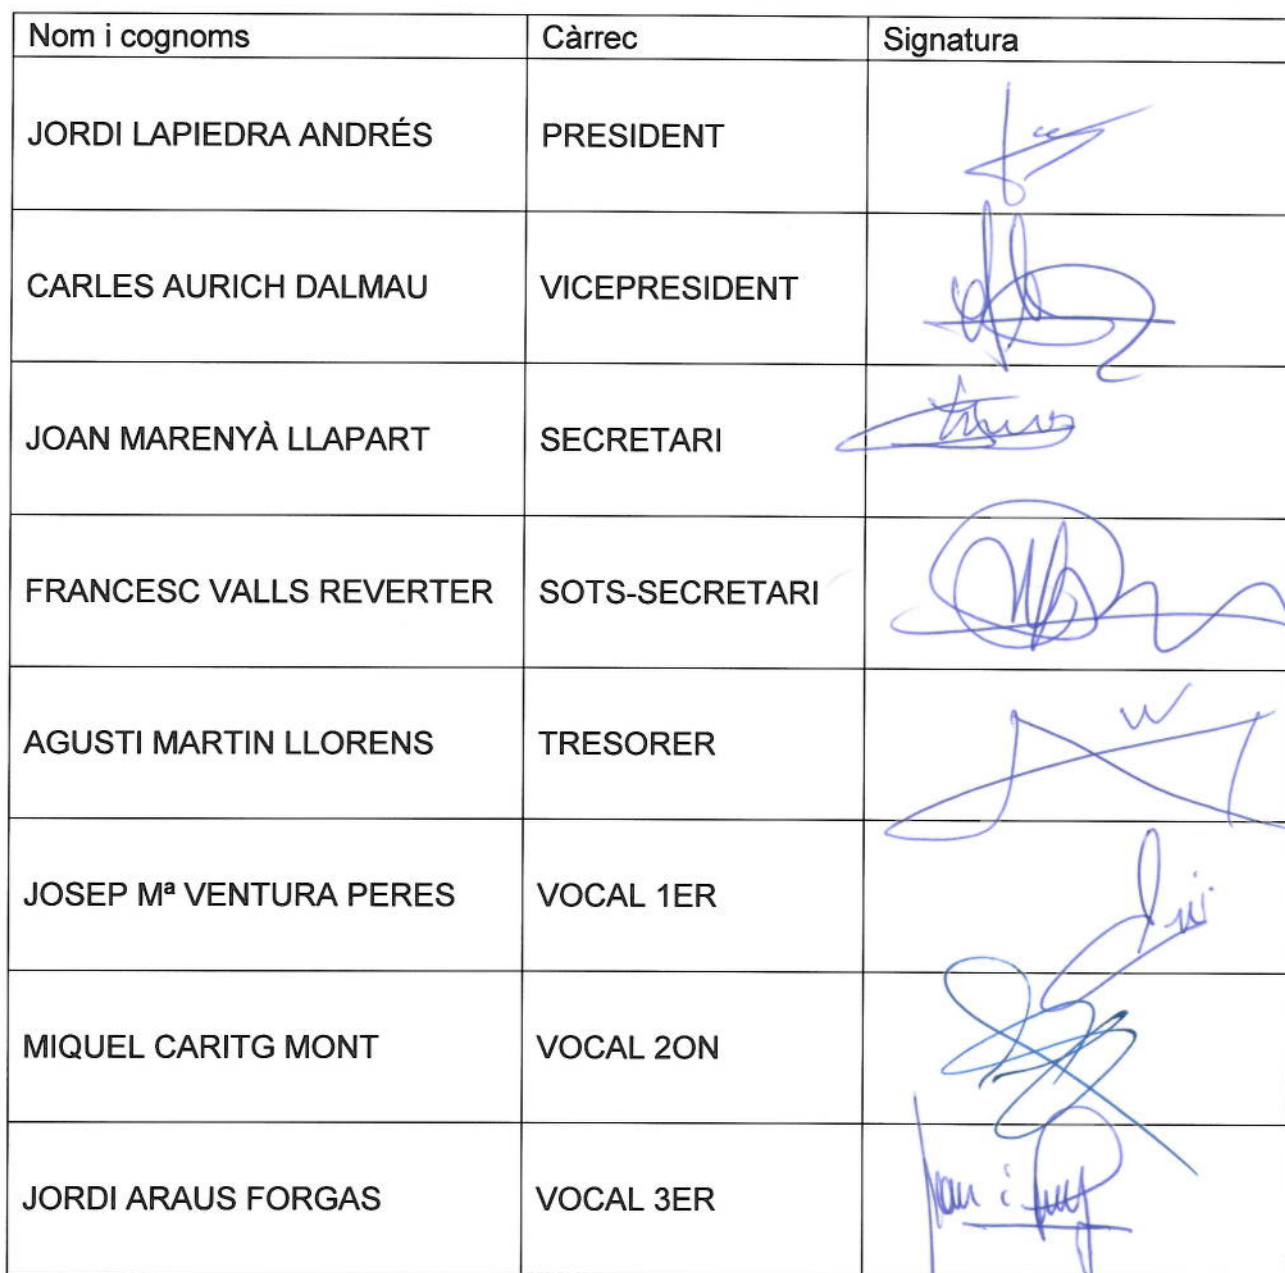 Nom i cognoms Càrrec Signatura
JORDI LAPIEDRA ANDRÉS PRESIDENT
CARLES AURICH DALMAU VICEPRESIDENT
JOAN MARENYÀ LLAPART SECRETARI
FRANCESC VALLS REVERTER SOTS-SECRETARI
AGUSTI MARTIN LLORENS TRESORER
JOSEP Mª VENTURA PERES VOCAL 1ER
MIQUEL CARITG MONT VOCAL 2ON
JORDI ARAUS FORGAS VOCAL 3ER